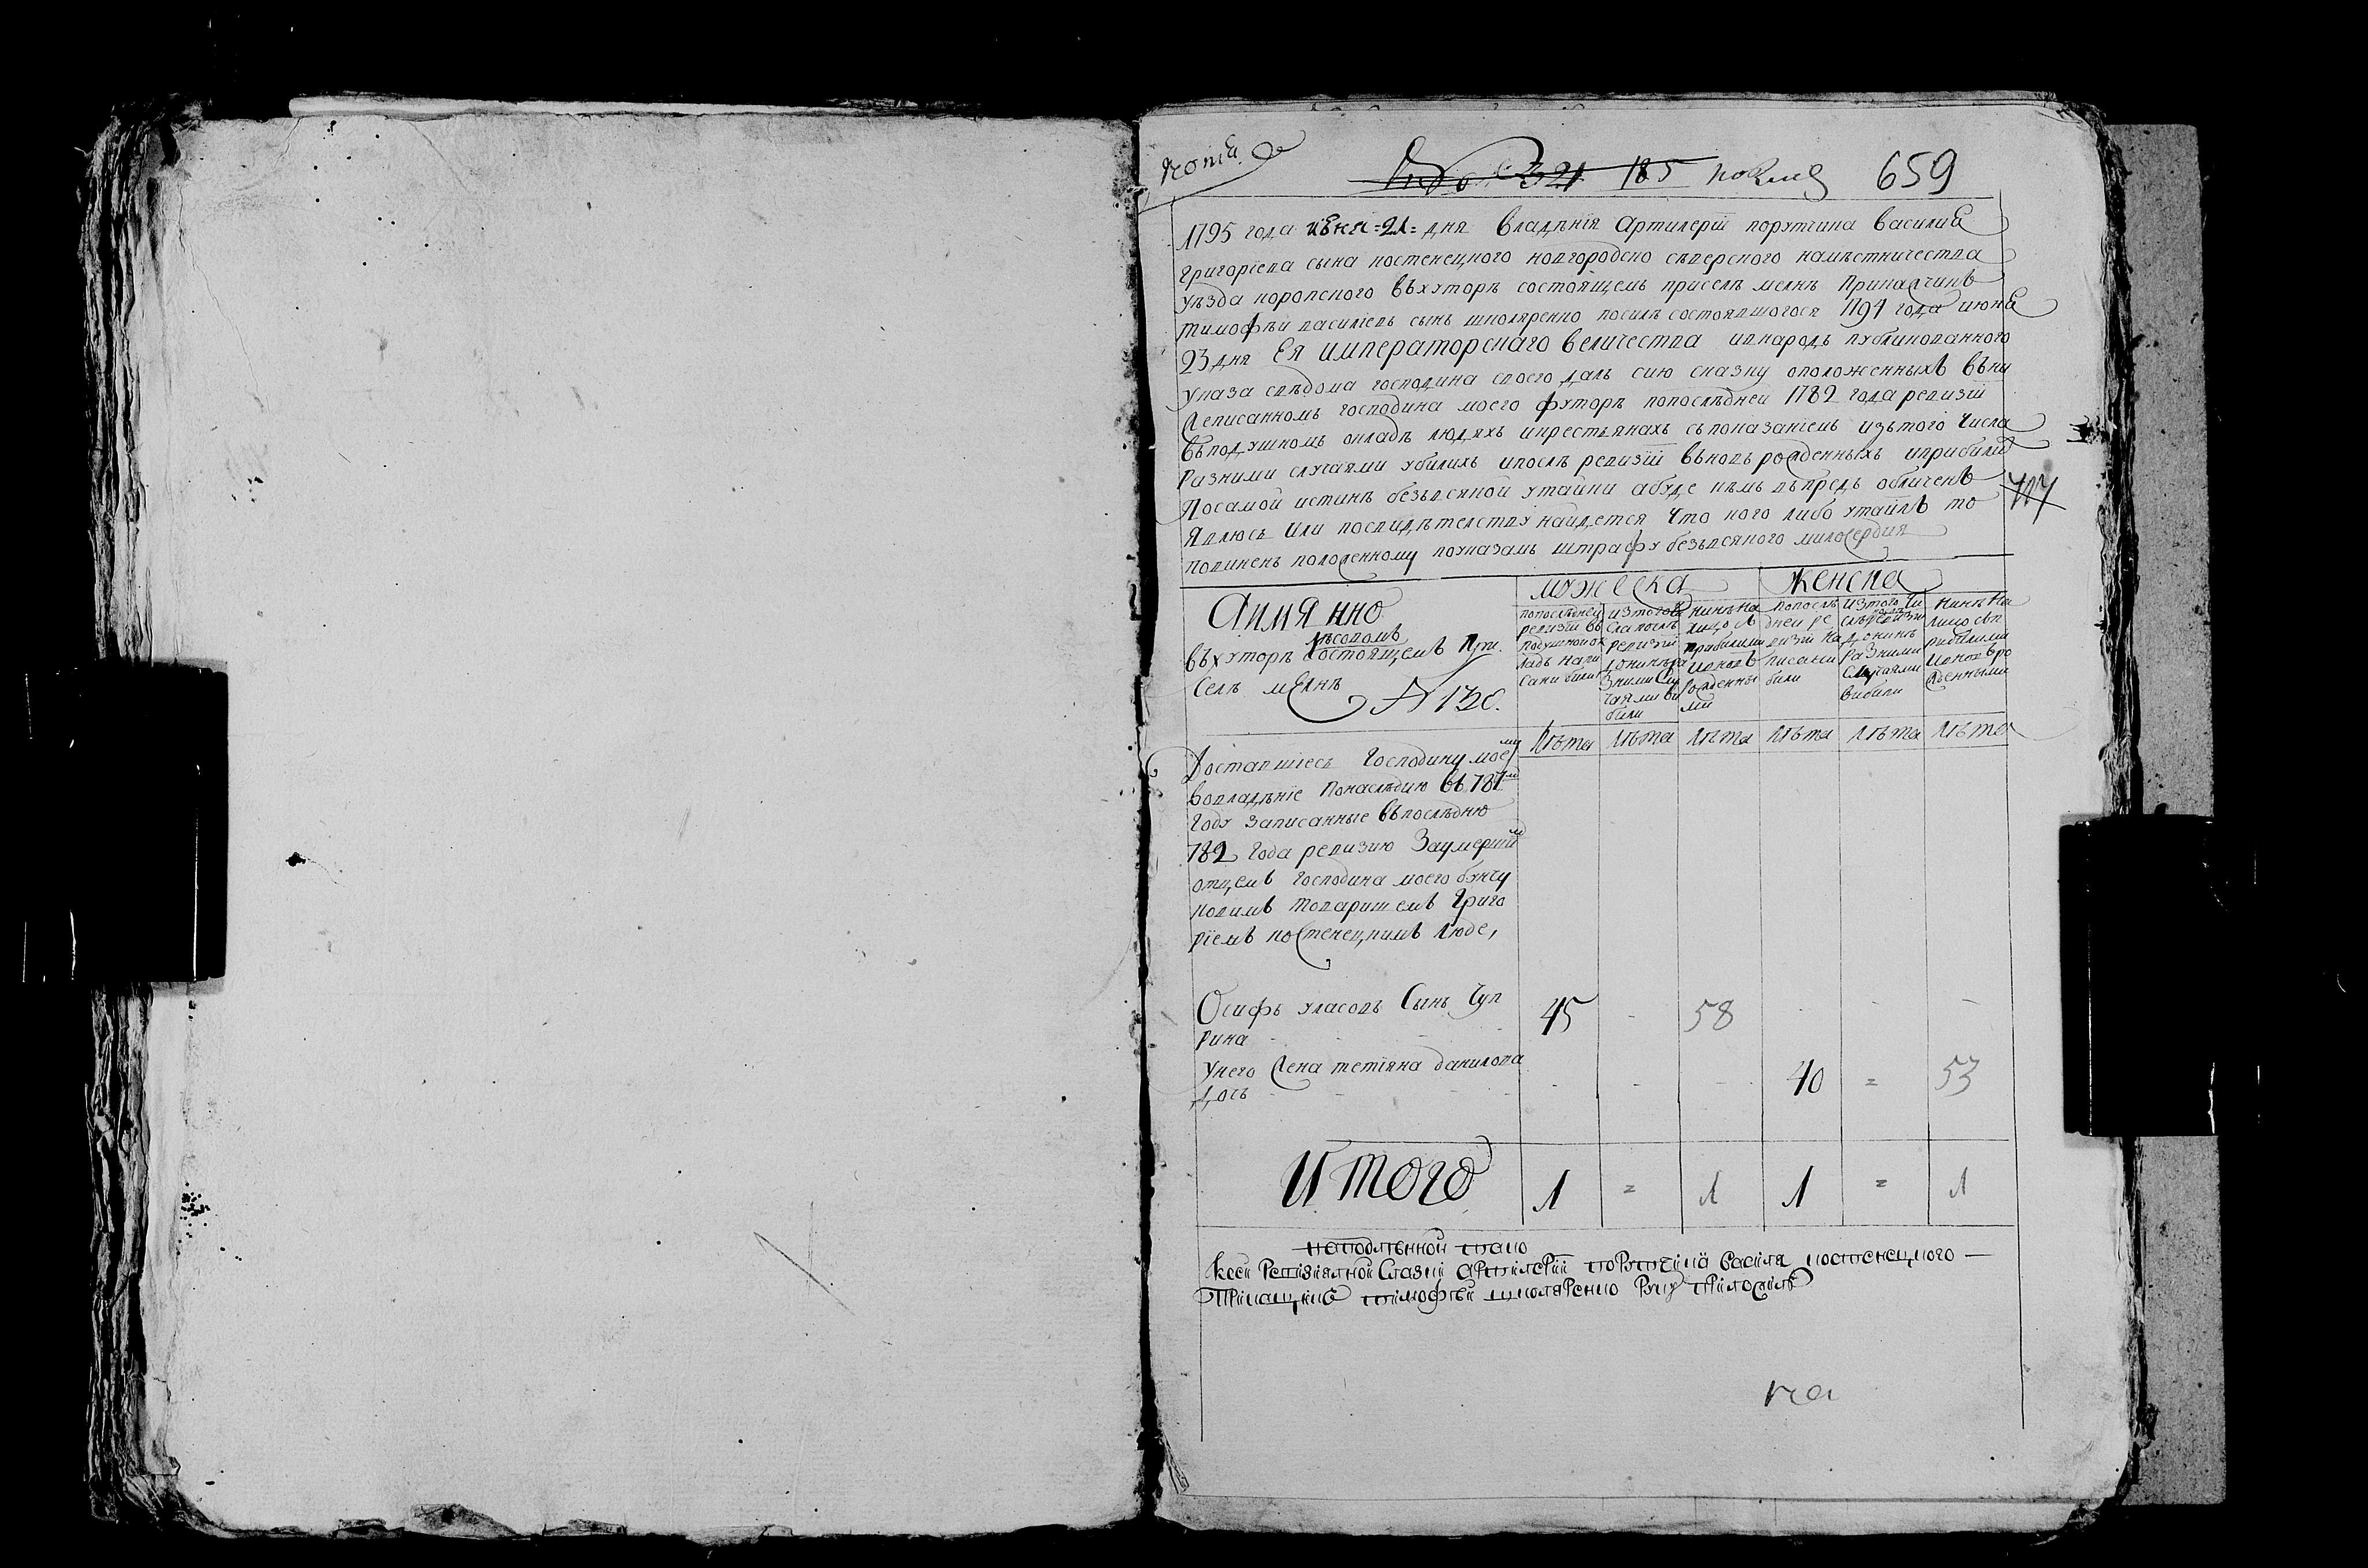 копія
185 659
1795 года июня 21 дня владѣнія артилеріи порутчика василия
григоріева сына костенецкого новгородско сѣверского намѣстничества
уѣзда коропского въ хуторѣ состоящемъ при селѣ мелнѣ приказчикъ
тимофѣй василіевъ сынъ школяренко посилѣ состоявшогося 1794 года июня
23 дня Ея императорскаго величества и внародъ публикованного
указа свѣдома господина своего далъ сию сказку о положенныхъ въ ни
жеписанномъ господина моего футорѣ по последней 1782 года ревизіи
въ подушномъ окладѣ людяхъ и крестьянахъ съ показаніемъ изъ того числа
разними случаями убилихъ и послѣ ревизіи вновь рожденныхъ и прибилих
по самой истинѣ безъ всякой утайки а буде кѣмъ въ предь обличенъ
явлюсь или по свидѣтелству найдется что кого либо утаилъ то
повиненъ положенному по указамъ штрафу безъ всякого милосердия
717
Аимянно
мужеска женска
въ хуторѣ слѣсомъ состоящемъ при
селѣ мелнѣ
по последней ревизіи въ подушной ок ладъ напи сани били
из того чи сла послѣ ревизіи до нинѣ ра зними слу чаями ви били
нинѣ на лицо с прибилими и вновь рожденны ми
по послѣ дней ре визіи на писани били
из того чи сла послѣ ревизіи до нинѣ разними случаями вибили
нинѣ на лицо съ п рибилими и вновь ро жденными
лѣта лѣта лѣта лѣта лѣта лѣта
Доставшіесь господину моему
во владѣніе по наслѣдию въ 787
году записанные въ послѣдню
782 года ревизию за умершим
отцемъ господина моего бунчу
ковимъ товаришемъ григо
ріемъ костенецкимъ люде,
Осифъ уласовъ сынъ чуп
рина 45 - 58 - - -
у него жена тетіяна данилова
дочъ - - - 40 = 53
итого 1 = 1 1 = 1
к сей ревизиалной сказки артилеріи порутчика василя костенецкого
приказчикъ тимофѣй школяренко руку приложилъ